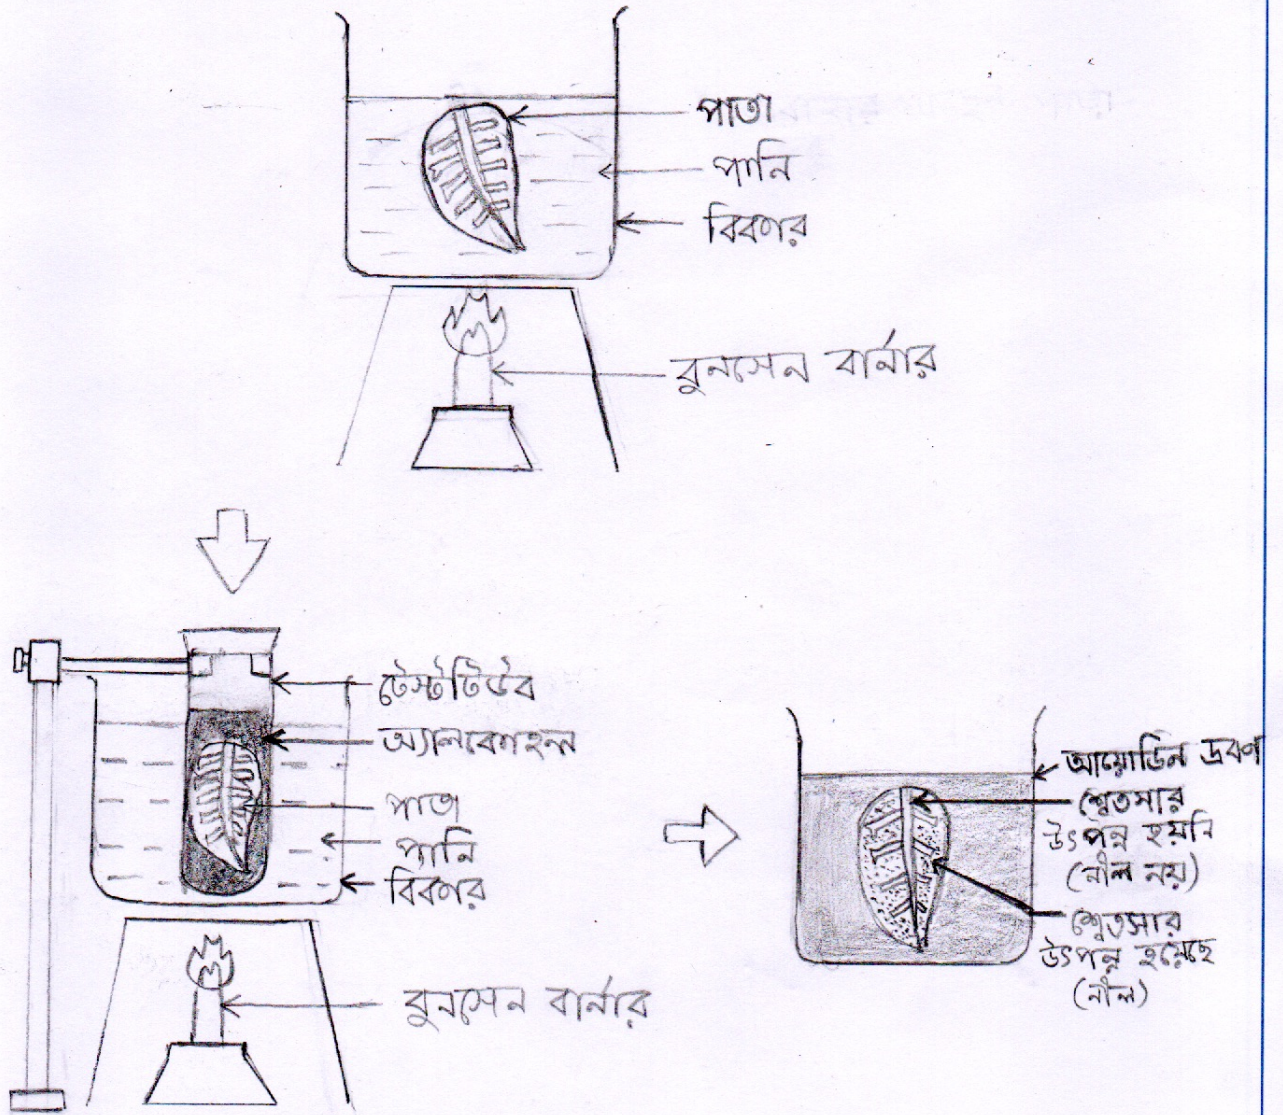 পাতা
পানি
বিকার
বুনসেন বার্নার
টেস্টটিউব
অ্যালকোহল
পাতা
পানি
বিকার
বুনসেন বার্নার
আয়োডিন দ্রবণ
শ্বেতসার
উৎপন্ন হয়নি
(নীল নয়)
শ্বেতসার
উৎপন্ন হয়েছে
(নীল)